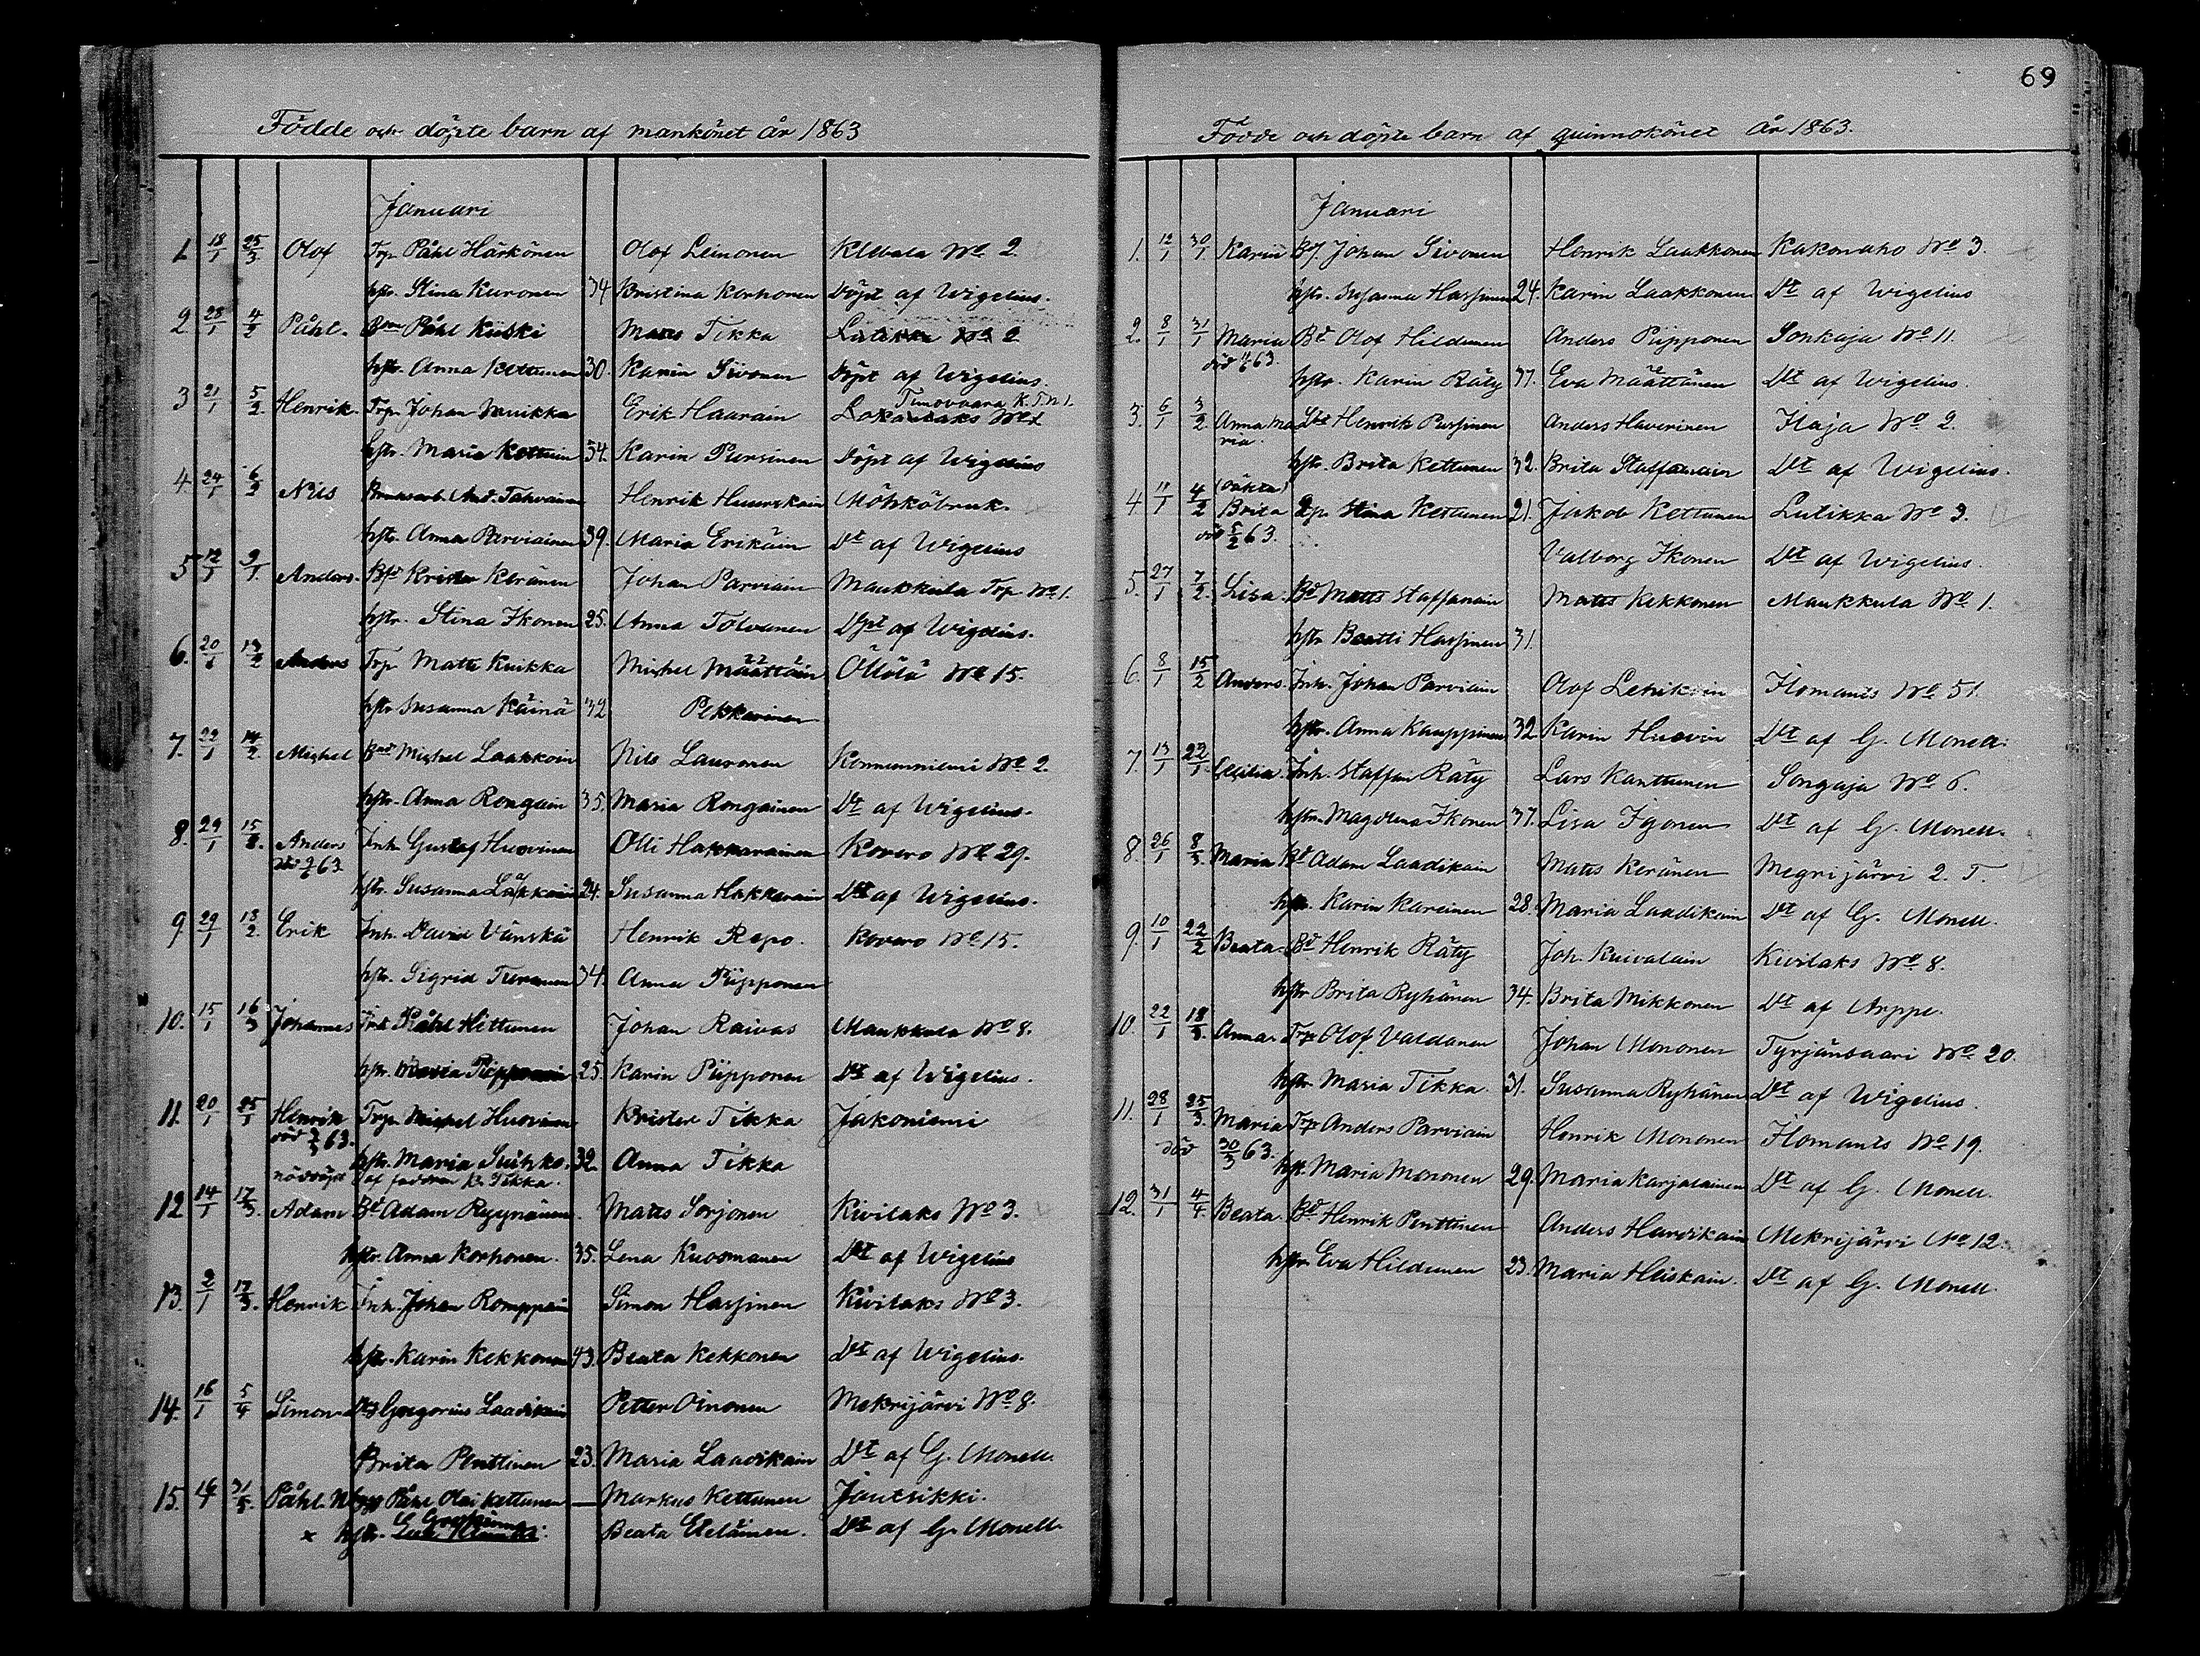 69
Födde och döpte barn af mankönet år 1863
Januari
1. 18/1 25/3 Olof Trp. Påhl Härkönen Olof Leinonen Klvbala No 2.
hstr. Stina Kuronen 34 Kristina Korhonen Döpt af Wigelius.
2. 28/1 4/2 Påhl. Påhl Kiiski Matts Tikka Lutikka No 2
hstr. Anna Kettunen 30. Karin Sivonen Döpt af Wigelius.
3 21/1 5/2 Henrik. Trp. Johan Erik Haarain Lokavlaks No 1 Timovaara K. T. N 1.
hstr. Maria Kettuin 34. Karin Pursinen Döpt af Wigelius
4. 24/1 6/2 Nils And. Tahvanain Henrik Huurskain Möhköbruk.
hstr. Anna Parviainen 39. Maria Erikäin Dt af Wigelius
5 12/1 9/1. Anders. Krister Keränen Johan Parviain Maukkula Trp No 1.
hstr. Stina Ikonen 25. Anna Tolvanen Döpt af Wigelius.
6. 20/1 13/2 Anders Trp Matts Kuikka Michel Määttäin Öllölä No 15.
hstr Susanna Käinä 32 Pekkarinen
7. 22/1 14/2. Michel Michel Laakkoin Nils Lauronen Konnunniemi No 2.
hstr. Anna Rongain 35. Maria Rongainen Dt af Wigelius.
8. 29/1 15/2. Anders Inh. Gustaf Huovinen Olli Hakkarainen Kovero No 29.
död 63. hstr. Susanna Laakkoin 24. Susanna Hakkarain Dt af Wigelius.
9 29/1 13/2. Erik Inh. David Vänskä Henrik Repo. Kovero No 15.
hstr. Sigrid Turunen 34. Anna Piipponen
10. 15/1 16/3 Johannes Inh Påhl Hettunen Johan Raivas Maukkula No 8.
hstr. Maria 25. Karin Piipponen Dt af Wigelius.
11. 20/1 25/1 Henrik Trp Michel Huovinen Krister Tikka Jakoniemi
död 63. hstr. Maria Suihko. 32. Anna Tikka
nöddöpt af faddren K. Tikka.
12 14/1 17/3. Adam Bd Adam Ryynänen. Matts Sorjonen Kivilaks No 3.
hstr. Anna Korhonen. 35. Lena Kuosmanen Dt af Wigelius
13. 2/1 17/3. Henrik Inh. Johan Romppain Simon Hassinen Kivilaks No 3.
hstr. Karin Kekkonen 43. Beata Kekkonen Dt af Wigelius.
14. 16/1 5/4 Simon Gregorius Laadikain Petter Oinonen Mekrijärvi No 8.
Brita Penttinen 23. Maria Laadikain Dt af G. Monell.
15. 31/5. Påhl Påhl Olai Kettunen — Markus Kettunen Jautsikki.
x hstr. Beata Eteläinen. Dt af G. Monell.
Födde och döpte barn af quinnokönet år 1863.
Januari
1. 12/1 30/1 Karin Johan Sivonen Henrik Laakkonen Kakonaho No 3.
hstr. Susanna Hassinen 24. Karin Laakkonen Dt af Wigelius
2. 8/1 31/1 Maria Bd Olof Hildunen Anders Piipponen Sonkaja No 11.
död 63. hstr. Karin Räty 37. Eva Määttänen Dt af Wigelius.
3. 6/1 3/2 Anna Maria. Henrik Pursinen Anders Haverinen Ilaja No 2.
hstr. Brita Kettunen 32. Brita Staffanain Dt af Wigelius.
4 11/1 4/2 (oäkta) Brita Stina Kettunen 21. Jakob Kettunen Lutikka No 3.
död 5/2 63. Valborg Ikonen Dt af Wigelius.
5. 27/1 7/2. Lisa. Bd Matts Staffanain Matts Kekkonen Maukkula No 1.
hstr Beatti Hassinen 31.
6. 8/1 15/2 Anders. Inh. Johan Parviain Olof Lehikoin Ilomants No 51.
hstr. Anna Kauppinen 32 Karin Huovin Dt af G. Monell.
7. 13/1 22/1. Cecilia. Inh. Staffan Räty Lars Kanttunen Songaja No 6.
hstr. Magdlena Ikonen 37. Lisa Igonen Dt af G. Monell.
8. 26/1 8/3 Maria Bd Adam Laadikain Matts Keränen Megrijärvi 2. T.
hstr. Karin Kareinen 28. Maria Laadikain Dt af G. Monell.
9. 10/1 22/2 Beata. Bd Henrik Räty Joh. Kuivalain Kivilaks No 8.
hstr Brita Ryhänen 34. Brita Mikkonen Dt af Arppe.
10. 22/1 18/3. Anna. Trp Olof Valdanen Johan Mononen Tyrjänsaari No 20.
hstr. Maria Tikka. 31. Susanna Ryhänen Dt af Wigelius.
11. 28/1 25/3. Maria Trp Anders Parviain Henrik Mononen Ilomants No 19.
död 30/3 63. hstr. Maria Mononen 29. Maria Karjalainen Dt af G. Monell.
12. 31/1 4/4. Beata. Bd Henrik Penttinen Anders Haverikain Mekrijärvi No 12.
hstr. Eva Hildunen 23. Maria Heiskain. Dt af G. Monell.